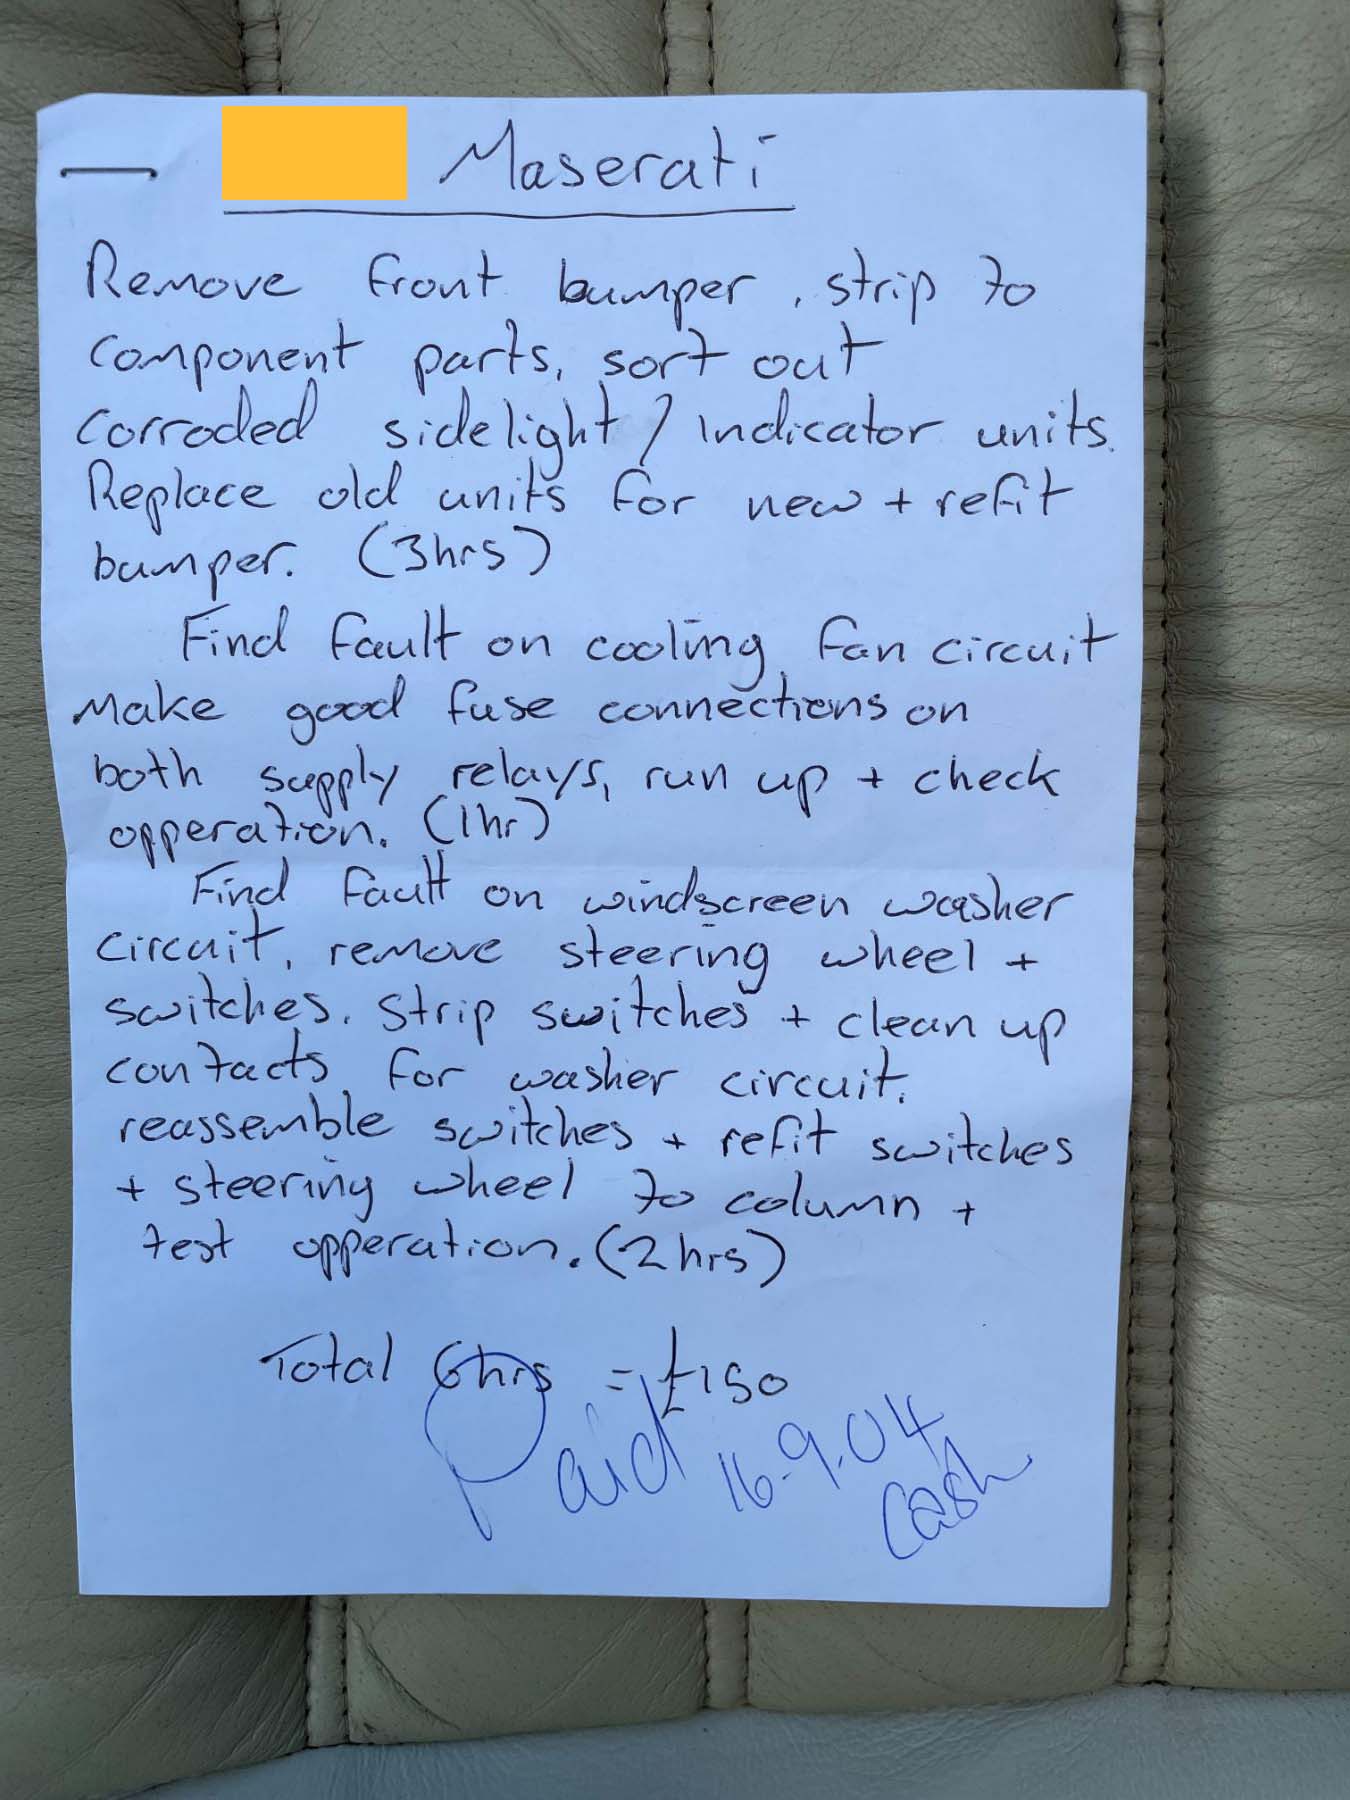 Maserati
Remove front bumper, strip to
component parts, sort out
corroded sidelight / indicator units.
Replace old units for new + refit
bumper. (3hrs)
Find fault on cooling fan circuit
Make good fuse connections on
both supply relays, run up + check
opperation. (1hr)
Find fault on windscreen washer
circuit, remove steering wheel +
switches. Strip switches + clean up
contacts for washer circuit.
reassemble switches + refit switches
+ steering wheel to column +
test opperation. (2hrs)
Total 6hrs = £150
Paid 16.9.04
Cash